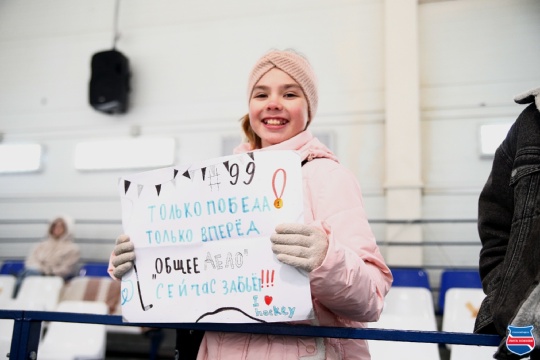 # 99
ТОЛЬКО ПОБЕДА
ТОЛЬКО ВПЕРЁД
"ОБЩЕЕ ДЕЛО"
СЕЙЧАС ЗАБЬЁТ!!!
I ❤ hockey